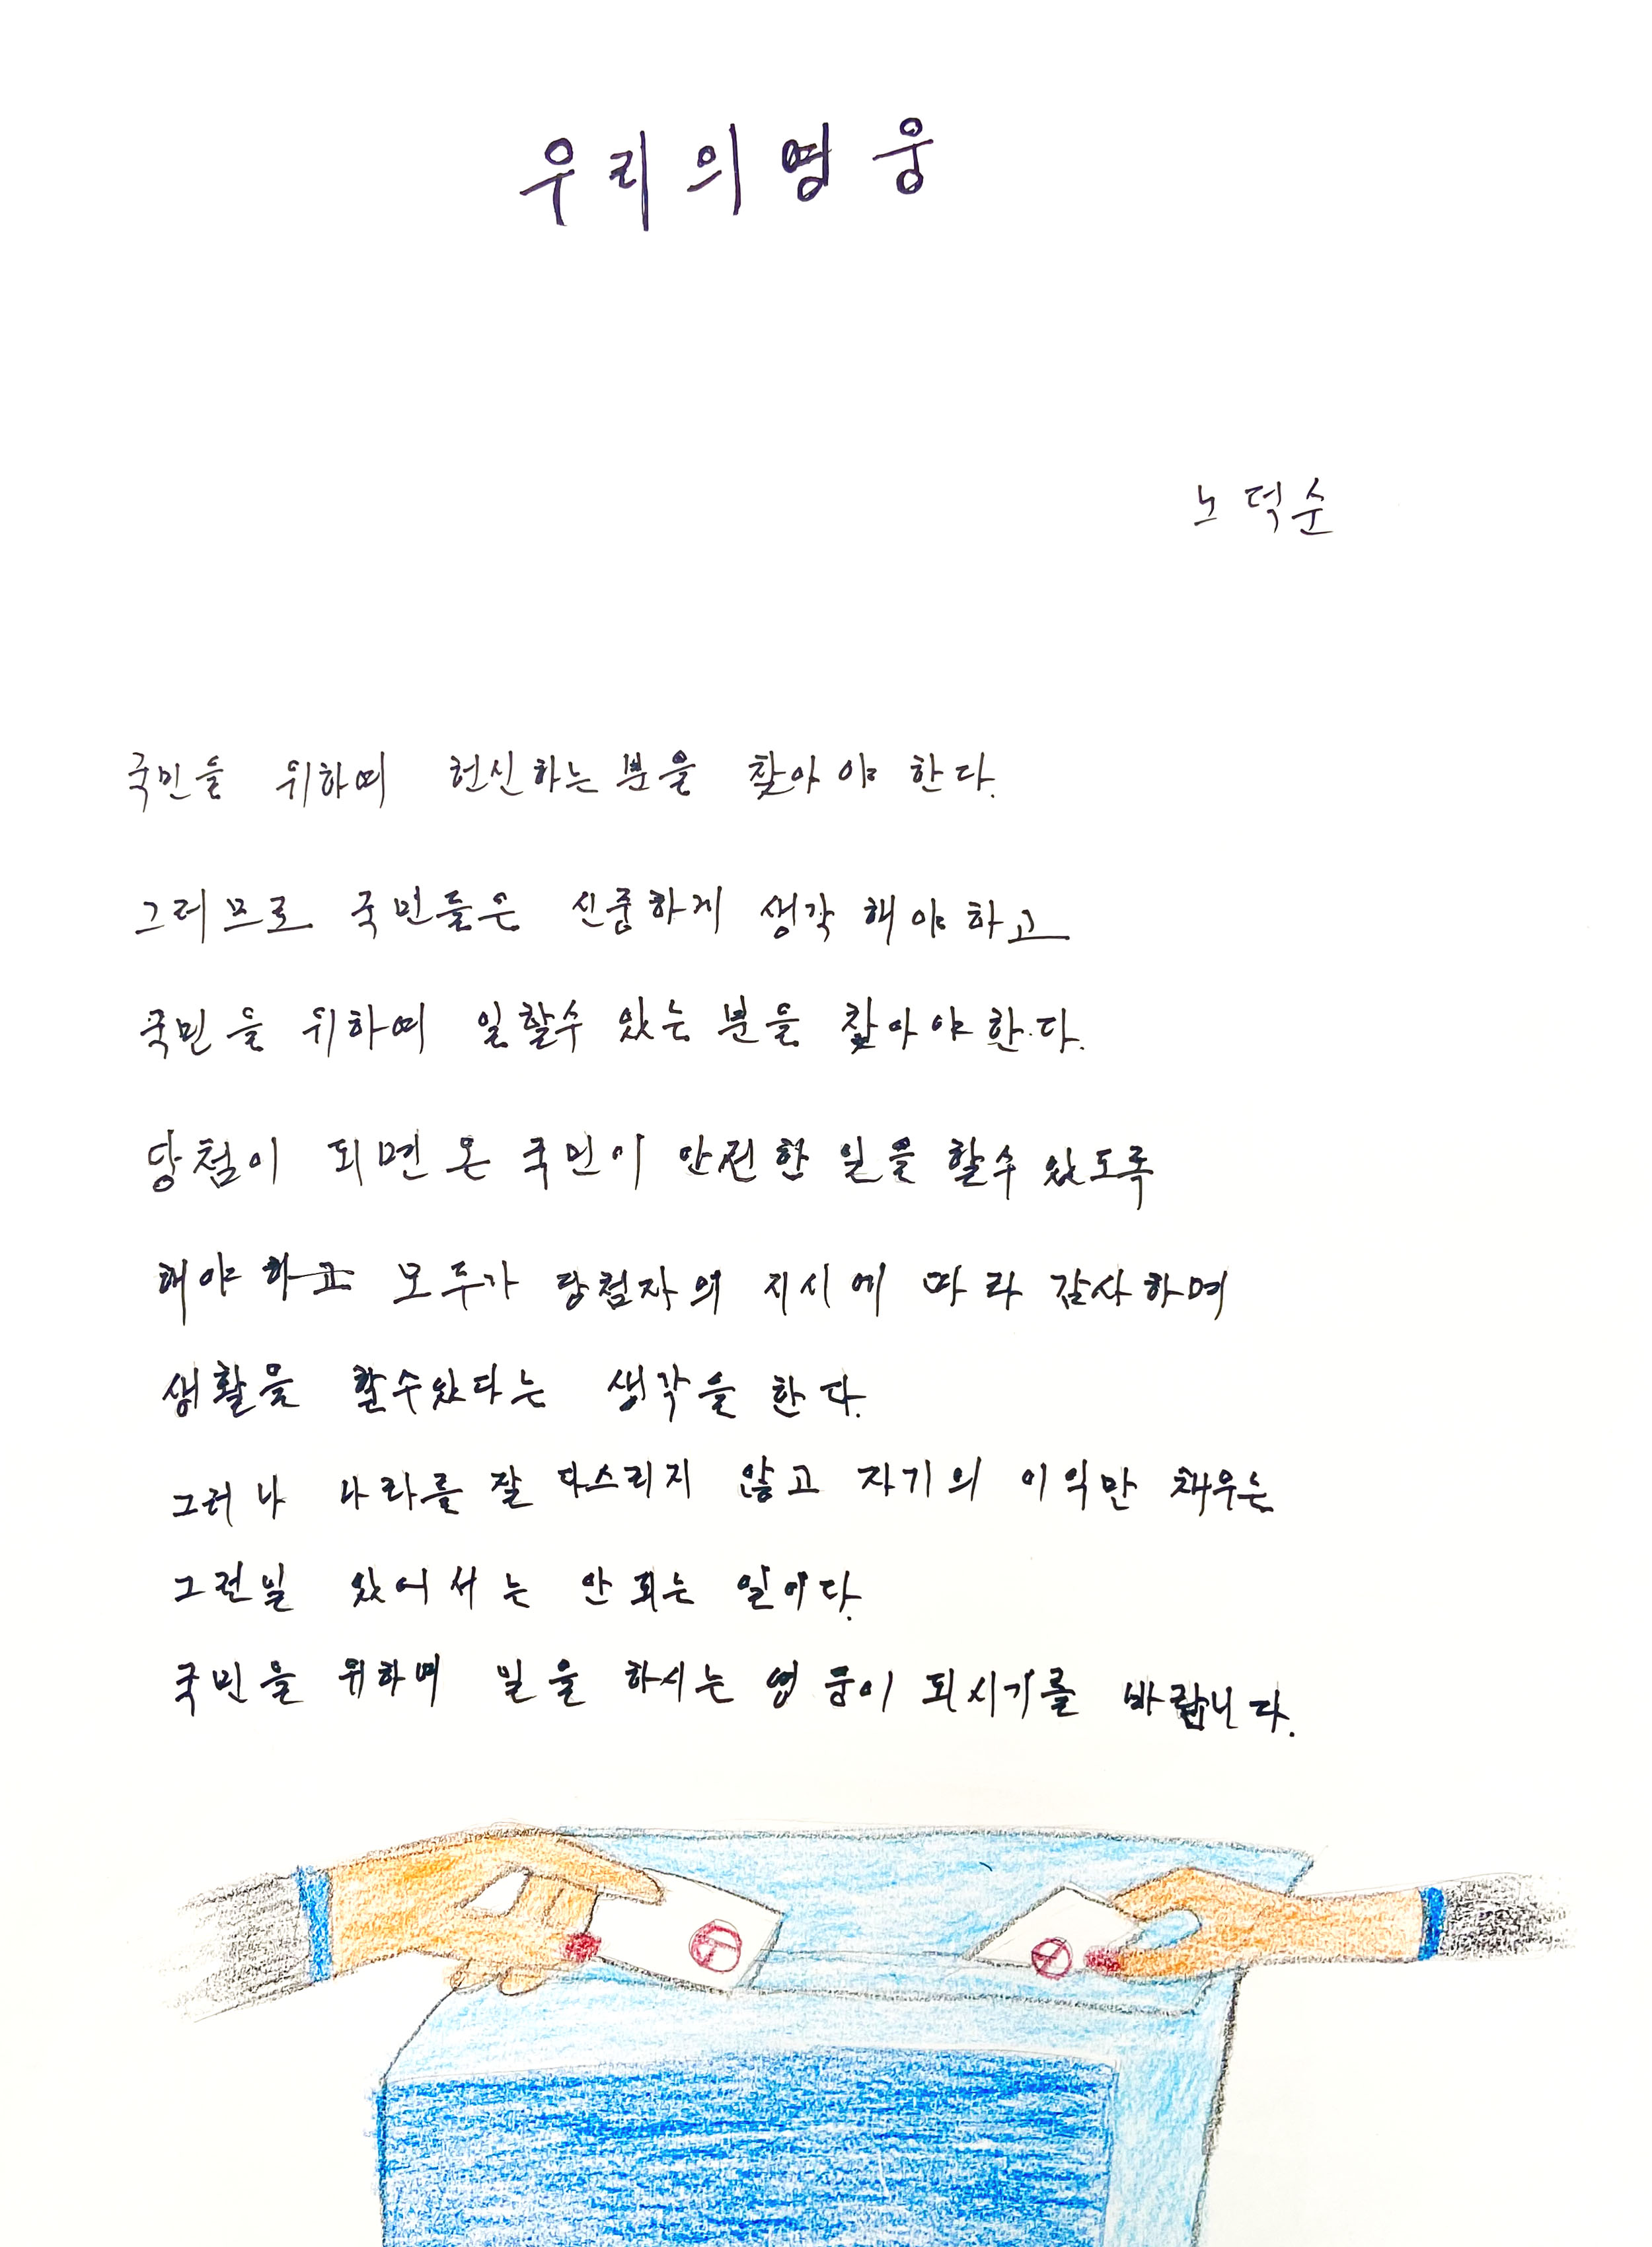 우리의영웅
노덕순
국민을 위하여 헌신하는 분을 찾아야 한다.
그러므로 국민들은 신중하게 생각 해야하고
국민을 위하여 일할수 있는 분을 찾아야한다.
당첨이 되면 온 국민이 안전한 일을 할수 있도록
해야 하고 모두가 당첨자의 지시에 따라 감사하며
생활을 할수있다는 생각을 한다.
그러나 나라를 잘 다스리지 않고 자기의 이익만 채우는
그런일 있어서는 안되는 일이다.
국민을 위하여 일을 하시는 영웅이 되시기를 바랍니다.